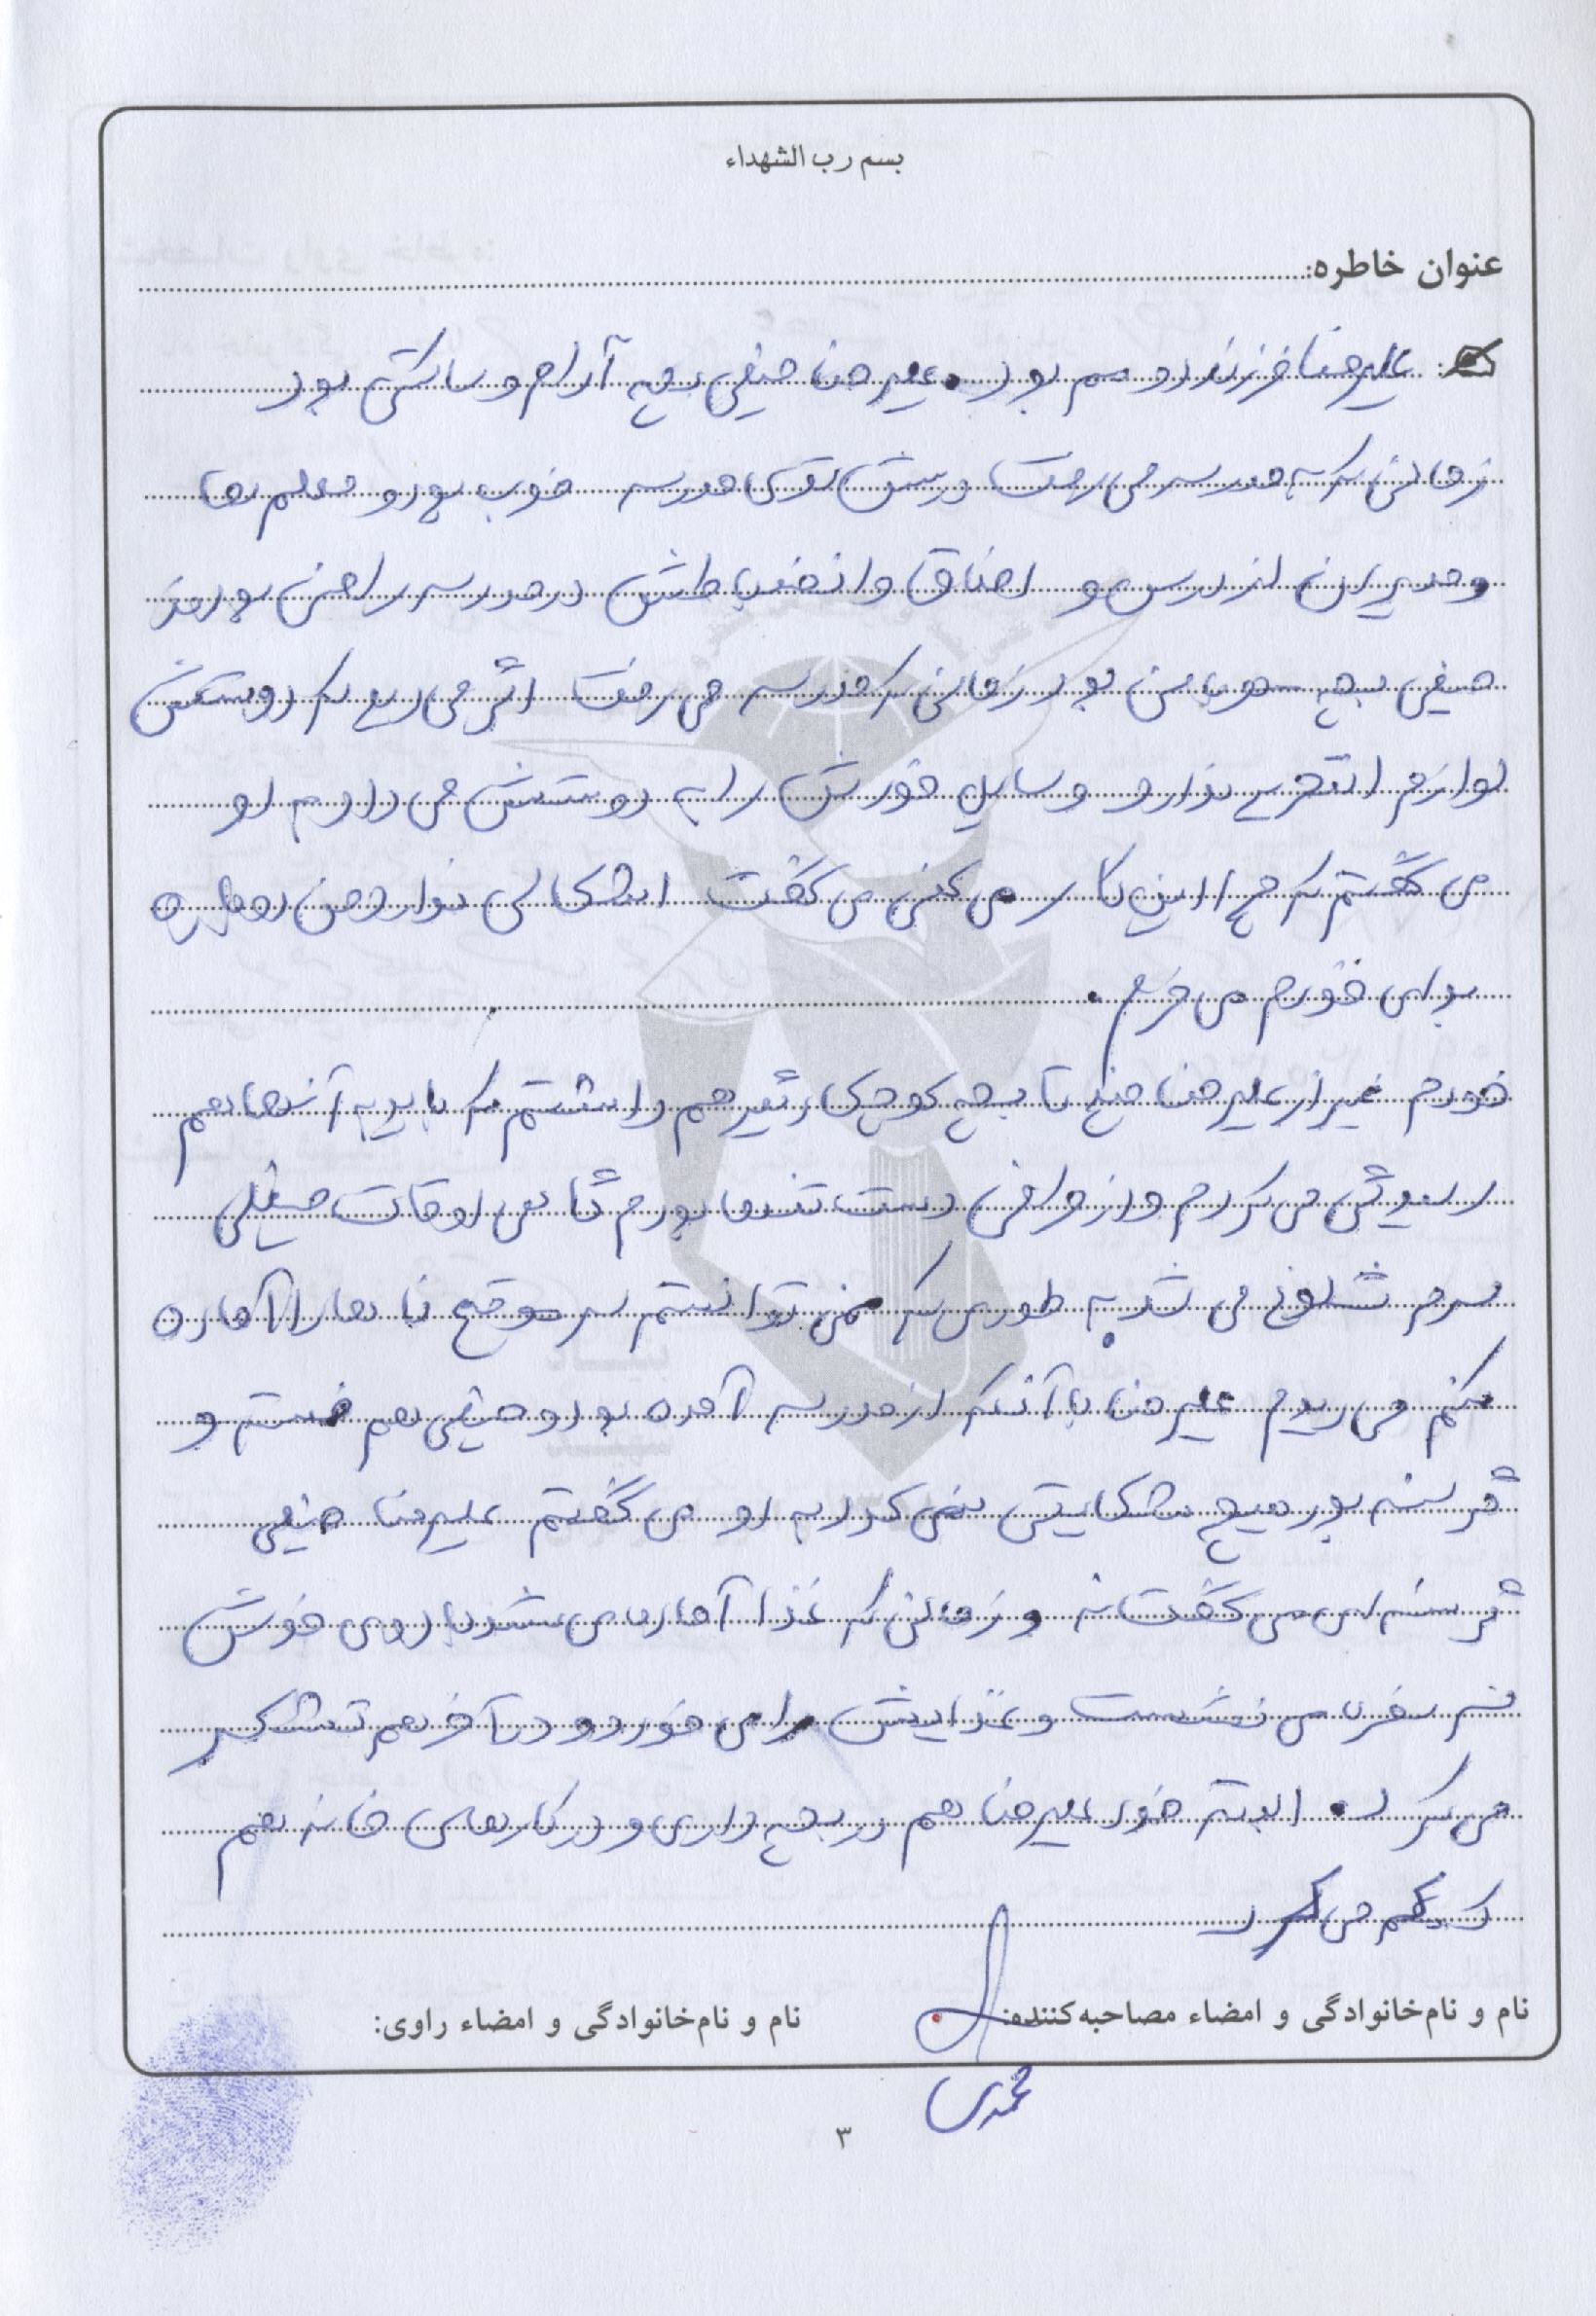 بسم رب الشهداء
عنوان خاطره:
علیرضا فرزند دومم بود. علیرضا خیلی بچه آرام و ساکتی بود
زمانی که به مدرسه می رفت درسش توی مدرسه خوب بود و معلم ها
و مدیران از درس و اخلاق و انضباطش در مدرسه راضی بودند
خیلی بچه مهربانی بود زمانی که مدرسه می رفت اگر می دید که دوستش
لوازم التحریر ندارد وسایل خودش را به دوستش می داد به او
می گفتم که چرا این کار می کنی می گفت اشکالی ندارد من دوباره
برای خودم می خرم.
خودم غیر از علیرضا پنج تا بچه کوچک دیگر هم داشتم که باید به آنها هم
رسیدگی می کردم و از طرفی دست تنها بودم گاهی اوقات خیلی
سرم شلوغ می شد به طوری که نمی توانستم سر موقع ناهار را آماده
کنم می دیدم علیرضا با آنکه از مدرسه آمده بود و خیلی هم خسته و
گرسنه بود هیچ شکایتی نمی کرد به او می گفتم علیرضا خیلی
گرسنه ای می گفت نه و زمانی که غذا آماده می شد با روی خوش
سر سفره می نشست و غذایش را می خورد و در آخر هم تشکر
می کرد. البته خود علیرضا هم در بچه داری و در کارهای خانه هم
کمکم می کرد
نام و نام‌خانوادگی و امضاء مصاحبه‌کننده:
نام و نام‌خانوادگی و امضاء راوی:
محمدی
۳